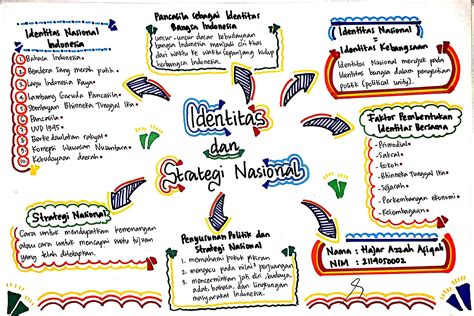 Identitas Nasional
Indonesia
1 Bahasa Indonesia
2 Bendera sang merah putih
3 Lagu Indonesia Raya
4 Lambang Garuda Pancasila
5 Semboyan Bhinneka Tunggal Ika
6 Pancasila
7 UUD 1945
8 Berkedaulatan rakyat
9 Konsepsi Wawasan Nusantara
10 Kebudayaan daerah
Pancasila sebagai Identitas
Bangsa Indonesia
unsur-unsur dasar kebudayaan
bangsa Indonesia menjadi ciri khas
dari waktu ke waktu sepanjang hidup
berbangsa Indonesia.
Identitas Nasional
= Identitas Kebangsaan
Identitas Nasional merujuk pada
identitas bangsa dalam pengertian
politik (political unity).
Identitas
dan
Strategi Nasional
Faktor Pembentukan
Identitas Bersama
- Primodial
- Sakral
- tokoh
- Bhinneka Tunggal Ika
- Sejarah
- Perkembangan ekonomi
- Kelembagaan
Strategi Nasional
Cara untuk mendapatkan kemenangan
atau cara untuk mencapai suatu tujuan
yang telah ditetapkan.
Penyusunan Politik dan
Strategi Nasional
1. memahami pokok pikiran
2. mengacu pada nilai² perjuangan
3. mencerminkan jati diri, budaya,
adat, bahasa, dan lingkungan
masyarakat Indonesia.
Nama : Hajar Azzah Afiqah
NIM : 2119050002